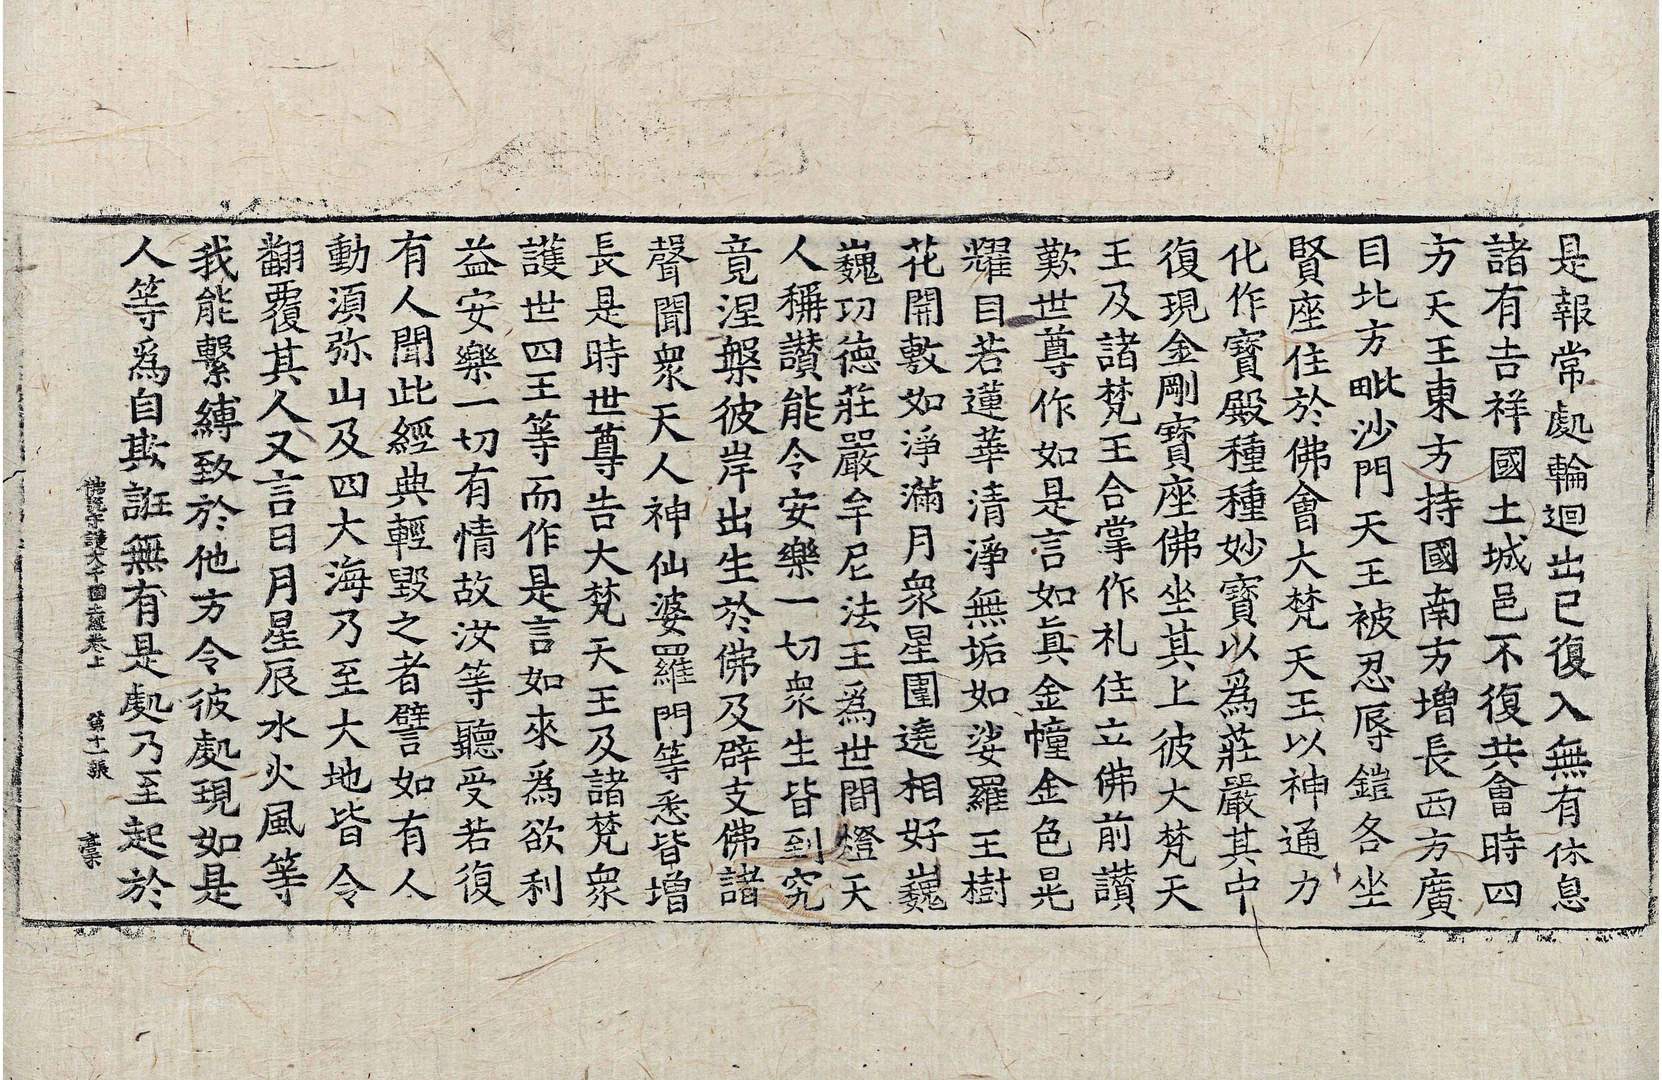 是報常處輪迴出已復入無有休息
諸有吉祥國土城邑不復共會時四
方天王東方持國南方增長西方廣
目北方毗沙門天王被忍辱鎧各坐
賢座住於佛會大梵天王以神通力
化作寶殿種種妙寶以為莊嚴其中
復現金剛寶座佛坐其上彼大梵天
王及諸梵王合掌作礼住立佛前讃
歎世尊作如是言如眞金幢金色晃
耀目若蓮華清淨無垢如娑羅王樹
花開敷如淨滿月衆星圍遶相好巍
巍功德莊嚴牟尼法王爲世間燈天
人稱讃能令安樂一切衆生皆到究
竟涅槃彼岸出生於佛及辟支佛諸
聲聞衆天人神仙婆羅門等悉皆增
長是時世尊告大梵天王及諸梵衆
護世四王等而作是言如來爲欲利
益安樂一切有情故汝等聽受若復
有人聞此經典輕毀之者譬如有人
動湏弥山及四大海乃至大地皆令
翻覆其人又言日月星辰水火風等
我能繫縛致於他方令彼處現如是
人等爲自欺誑無有是處乃至起於
佛說守護大千國土經卷上 第十一張